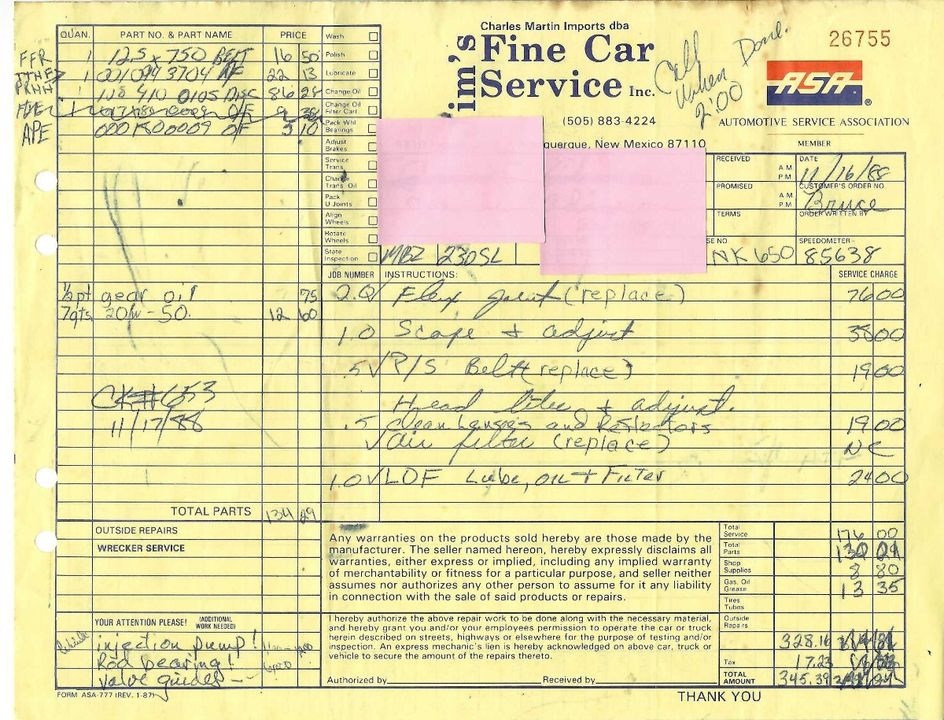 Charles Martin Imports dba
im's Fine Car
Service Inc.
(505) 883-4224
querque, New Mexico 87110
Call When Done.
2:00
26755
ASA®
AUTOMOTIVE SERVICE ASSOCIATION
MEMBER
QUAN. PART NO. & PART NAME PRICE
FFR 1 12.5 x 750 BELT 16 50
1 001094 3704 AF 22 13
410 0105 DISC 86 24
APE 000 180 0009 O/F 5 10
1/2 pt gear oil 75
7qts 20w-50. 12 60
CK#653
11/17/88
TOTAL PARTS 134 49
Wash
Polish
Lubricate
Change Oil
Change Oil Filter Cart.
Pack Whl Bearings
Adjust Brakes
Service Trans.
Change Trans. Oil
Pack U Joints
Align Wheels
Rotate Wheels
State Inspection
RECEIVED A.M. P.M.
DATE 11/16/88
PROMISED A.M. P.M.
CUSTOMER'S ORDER NO.
Bruce
TERMS ORDER WRITTEN BY
MBZ 230SL
SE NO NK 650
SPEEDOMETER 85638
JOB NUMBER INSTRUCTIONS: SERVICE CHARGE
2.0 Flex joint (replace) 76 00
1.0 Scope & adjust 38 00
.5 √ P/S Belt (replace) 19 00
Head lites & adjust.
.5 clean lenses and Reflectors 19 00
√ air filter (replace) NC
1.0 √ LOF Lube, oil + Filter 24 00
OUTSIDE REPAIRS
WRECKER SERVICE
YOUR ATTENTION PLEASE! (ADDITIONAL WORK NEEDED)
injection pump!
Rod bearing!
valve guides
FORM ASA-777 (REV. 1-87)
Any warranties on the products sold hereby are those made by the
manufacturer. The seller named hereon, hereby expressly disclaims all
warranties, either express or implied, including any implied warranty
of merchantability or fitness for a particular purpose, and seller neither
assumes nor authorizes any other person to assume for it any liability
in connection with the sale of said products or repairs.
I hereby authorize the above repair work to be done along with the necessary material,
and hereby grant you and/or your employees permission to operate the car or truck
herein described on streets, highways or elsewhere for the purpose of testing and/or
inspection. An express mechanic's lien is hereby acknowledged on above car, truck or
vehicle to secure the amount of the repairs thereto.
Authorized by Received by
Total Service 176 00
Total Parts 130 09
Shop Supplies 8 80
Gas, Oil Grease 13 35
Tires Tubes
Outside Repairs
328.16
Tax 17.23
TOTAL AMOUNT 345.39
THANK YOU